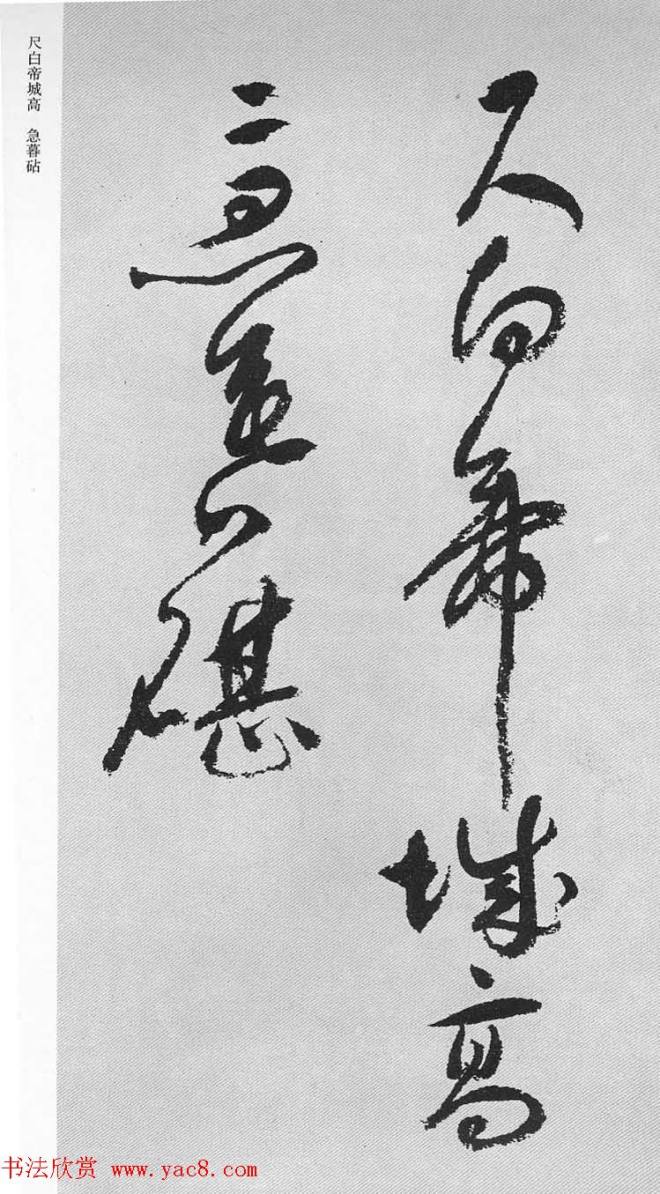 尺白帝城高
急暮碪
尺白帝城高 急暮砧
书法欣赏 www.yac8.com